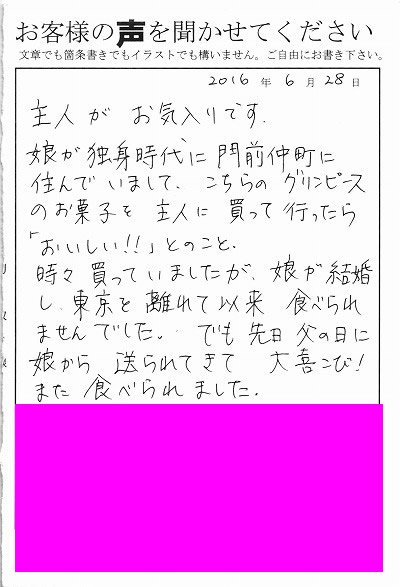 お客様の声を聞かせてください
文章でも箇条書きでもイラストでも構いません。ご自由にお書き下さい。
2016 年 6 月 28 日
主人が お気入りです.
娘が 独身時代に 門前仲町に
住んで いまして、 こちらの グリンピース
のお菓子を 主人に 買って 行ったら
「おいしい!!」とのこと.
時々 買っていましたが、 娘が 結婚
し、東京を 離れて以来 食べられ
ませんでした. でも 先日 父の日に
娘から 送られてきて 大喜こび!
また 食べられ ました.